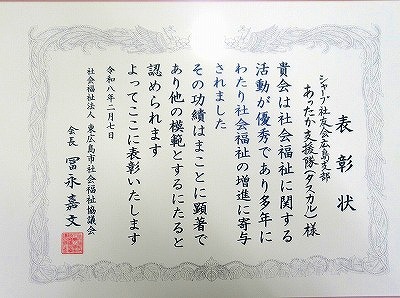 表彰状
シャープ社友会広島支部
あったか支援隊(タスカル)様
貴会は社会福祉に関する
活動が優秀であり多年に
わたり社会福祉の増進に寄与
されました
その功績はまことに顕著で
あり他の模範とするにたると
認められます
よってここに表彰いたします
令和八年二月七日
社会福祉法人 東広島市社会福祉協議会
会長 冨永嘉文